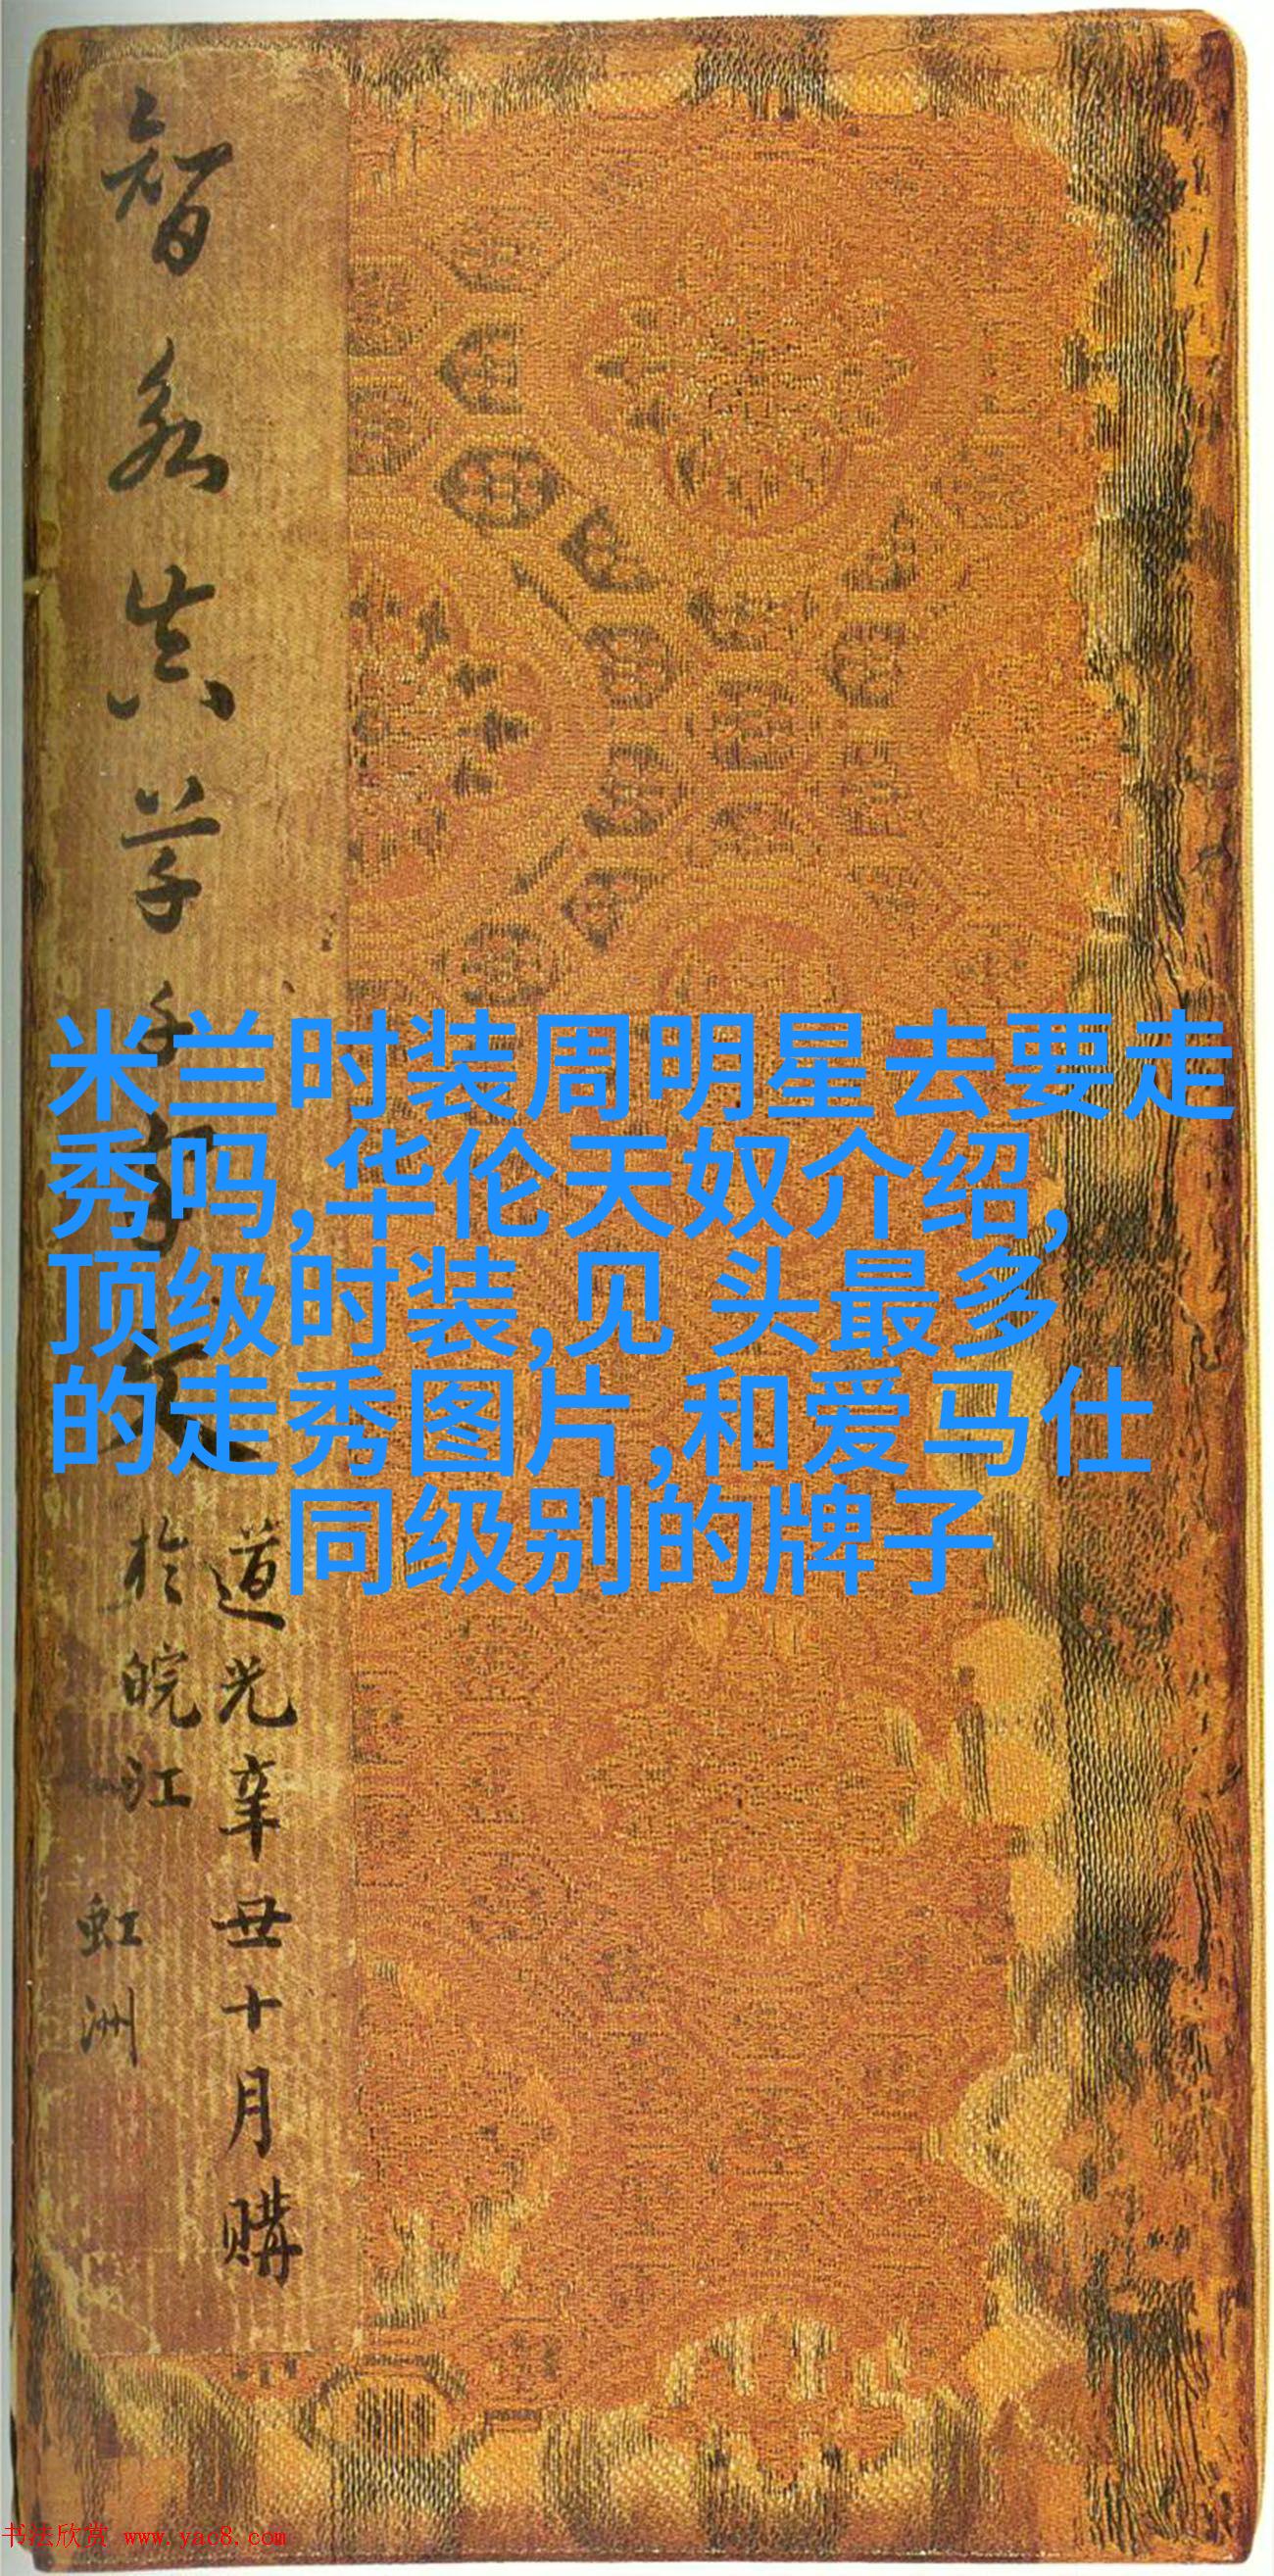 智永真草千字文
道光辛丑十月購
於皖江
虹洲
米兰时装周明星去要走
秀吗,华伦天奴介绍,
顶级时装,见 头最多
的走秀图片,和爱马仕
同级别的牌子
书法欣赏 www.yac8.com